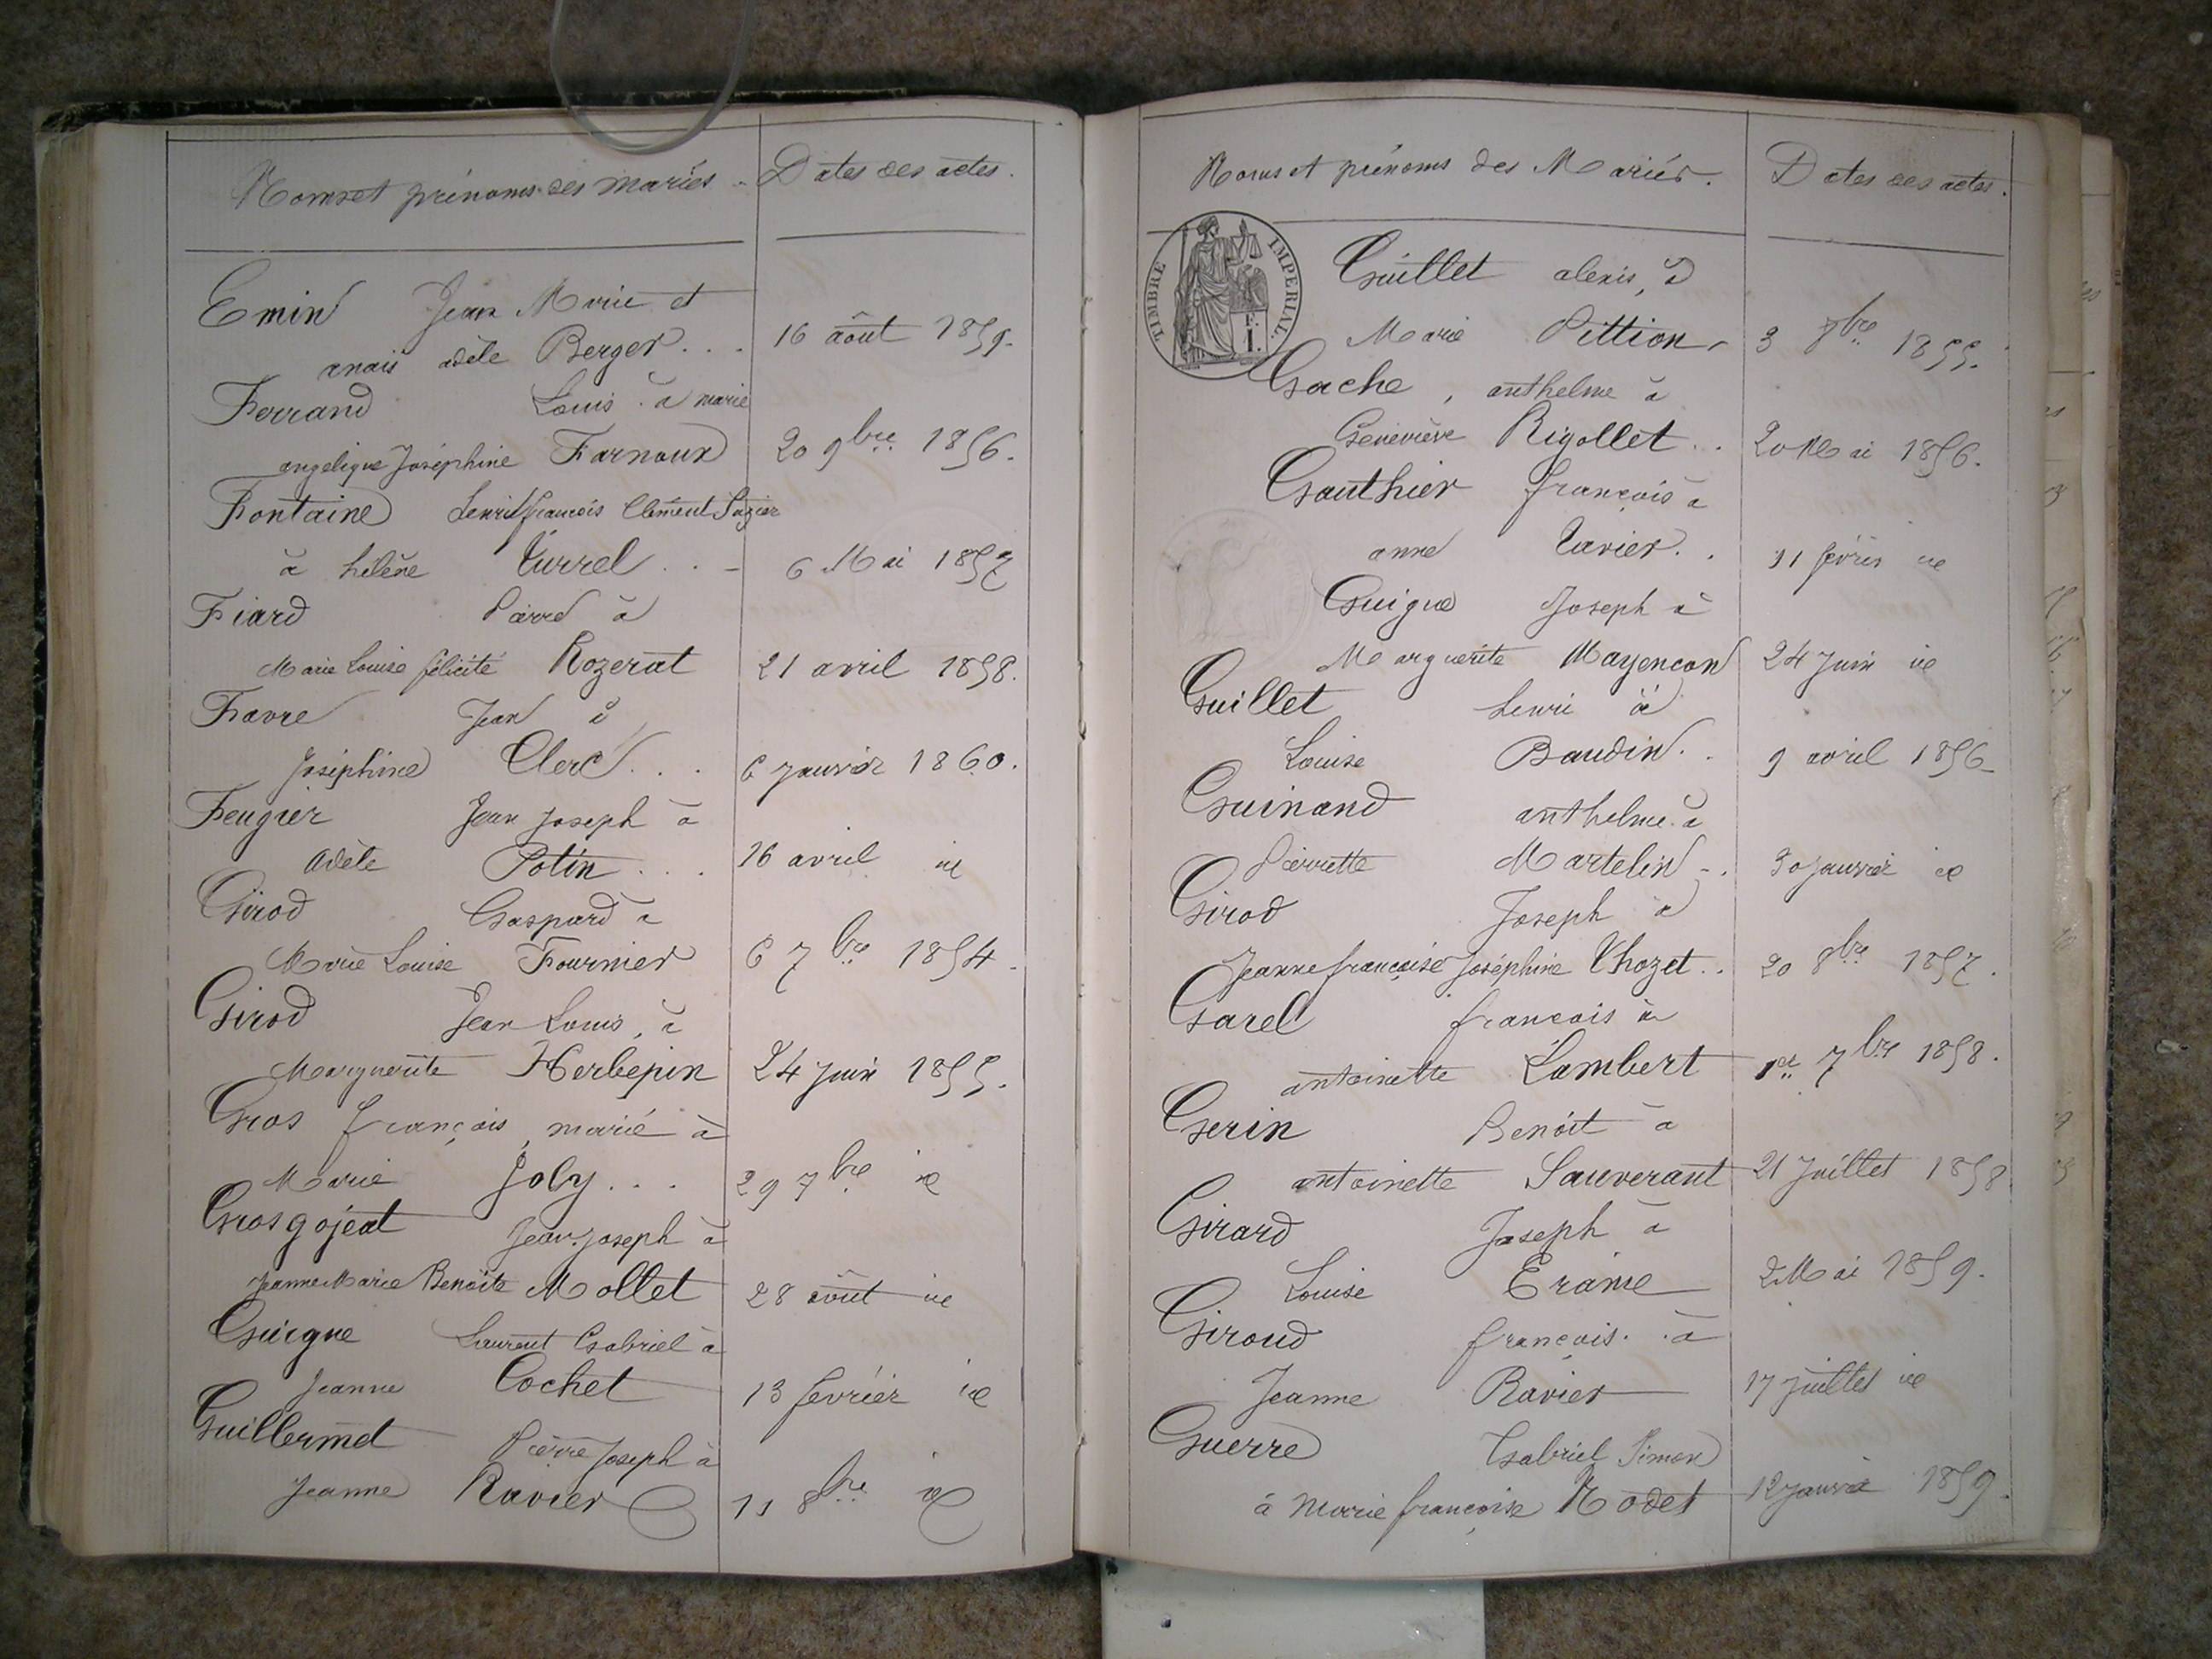 Noms et prénoms des mariés - Dates des actes.
Emin Jean Marie et
anaïs adèle Berger . . . 16 août 1859.
Ferrand Louis à marie
angelique Joséphine Farnoux 20 9bre 1856.
Fontaine henri françois Clément
à hélène Turrel . . - 6 Mai 1857
Fiard Pierre à
Marie Louise félicité Rozerat 21 avril 1858.
Favre Jean à
Joséphine Clerc . . . 6 janvier 1860.
Feugier Jean Joseph à
Adèle Potin . . . 16 avril id
Girod Gaspard à
Marie Louise Fournier 6 7bre 1854.
Girod Jean Louis, à
Marguerite Herbepin 24 Juin 1855.
Gros françois, marié à
Marie Joly . . . 29 7bre id
Grosgojeat Jean Joseph à
Jeanne Marie Benoite Mollet 28 août id
Guigue Laurent Gabriel à
Jeanne Cochet 13 février id
Guillermet Pierre Joseph à
Jeanne Ravier 11 8bre id
Noms et prénoms des Mariés. Dates des actes.
TIMBRE IMPERIAL
Guillet alexis, à
Marie Pittion 3 1855.
Gache, anthelme à
Geneviève Rigollet . . 20 Mai 1856.
Gauthier françois à
anne Varier . . 11 id
Guigue Joseph à
Marguerite Mayencon 24 Juin id
Guillet henri à
Louise Baudin . . 9 avril 1856
Guinand anthelme à
Pierrette Martelin - . 30 janvier id
Girod Joseph à
Jeanne françoise Joséphine Thozet . . 20 8bre 1857.
Garel françois à
antoinette Lambert 1er 7bre 1858.
Gerin Benoit à
antoinette Sauverant 21 Juillet 1858
Girard Joseph à
Louise Erame 2 Mai 1859.
Giroud françois . . à
Jeanne Ravier 17 juillet id
Guerre Gabriel Simon
à Marie françoise Nodet 12 janvier 1859.